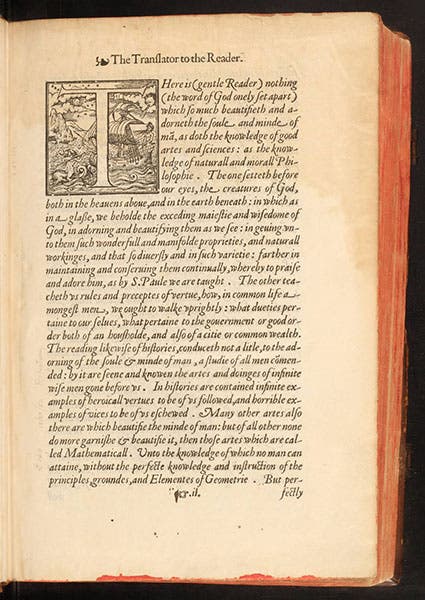 The Translator to the Reader.
THere is (gentle Reader) nothing
(the word of God onely set apart)
which so much beautifieth and a-
dorneth the soule and minde of
mã, as doth the knowledge of good
artes and sciences: as the know-
ledge of naturall and morall Phi-
losophie. The one setteth before
our eyes, the creatures of God,
both in the heauens aboue, and in the earth beneath: in which as
in a glasse, we beholde the exceding maiestie and wisedome of
God, in adorning and beautifying them as we see: in geuing vn-
to them such wonderfull and manifolde proprieties, and naturall
workinges, and that so diuersly and in such varietie: farther in
maintaining and conseruing them continually, whereby to praise
and adore him, as by S. Paule we are taught. The other tea-
cheth vs rules and preceptes of vertue, how, in common life a-
mongest men, we ought to walke vprightly: what dueties per-
taine to our selues, what pertaine to the gouernment or good or-
der both of an housholde, and also of a citie or common wealth.
The reading likewise of histories, conduceth not a litle, to the ad-
orning of the soule & minde of man, a studie of all men cõmen-
ded: by it are seene and knowen the artes and doinges of infinite
wise men gone before vs. In histories are contained infinite ex-
amples of heroicall vertues to be of vs followed, and horrible ex-
amples of vices to be of vs eschewed. Many other artes also
there are which beautifie the minde of man: but of all other none
do more garnishe & beautifie it, then those artes which are cal-
led Mathematicall. Unto the knowledge of which no man can
attaine, without the perfecte knowledge and instruction of the
principles, groundes, and Elementes of Geometrie. But per-
☞.ii. fectly